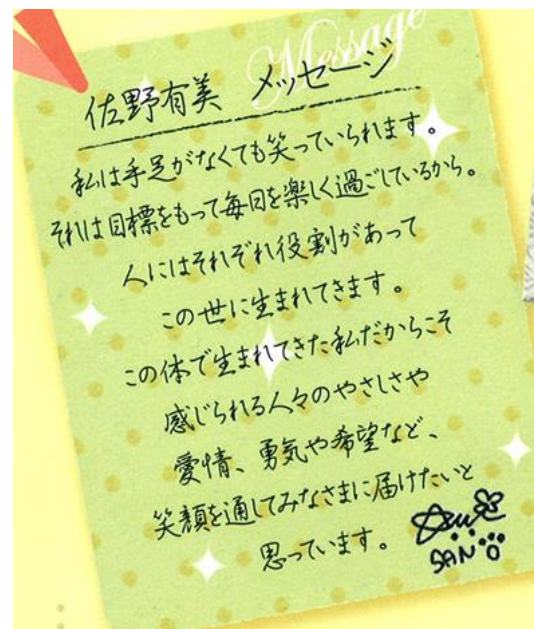 Message
佐野有美 メッセージ
私は手足がなくても笑っていられます。
それは目標をもって毎日を楽しく過ごしているから。
人にはそれぞれ役割があって
この世に生まれてきます。
この体で生まれてきた私だからこそ
感じられる人々のやさしさや
愛情、勇気や希望など、
笑顔を通してみなさまに届けたいと
思っています。
SANO